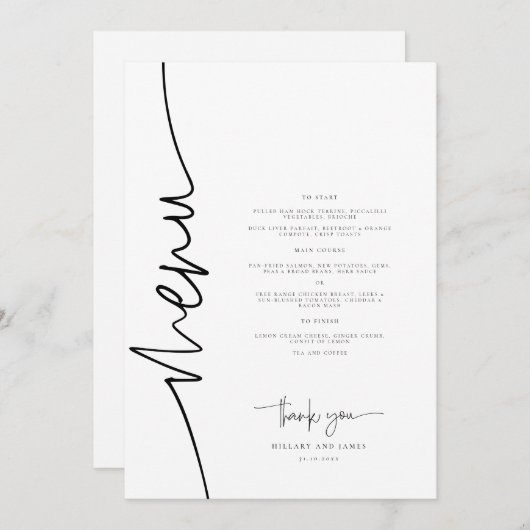 Menu
TO START
PULLED HAM HOCK TERRINE, PICCALILLI
VEGETABLES, BRIOCHE
DUCK LIVER PARFAIT, BEETROOT & ORANGE
COMPOTE, CRISP TOASTS
MAIN COURSE
PAN-FRIED SALMON, NEW POTATOES, GEMS,
PEAS & BROAD BEANS, HERB SAUCE
OR
FREE RANGE CHICKEN BREAST, LEEKS &
SUN-BLUSHED TOMATOES, CHEDDAR &
BACON MASH
TO FINISH
LEMON CREAM CHEESE, GINGER CRUMB,
CONFIT OF LEMON
TEA AND COFFEE
thank you
HILLARY AND JAMES
21.10.20XX